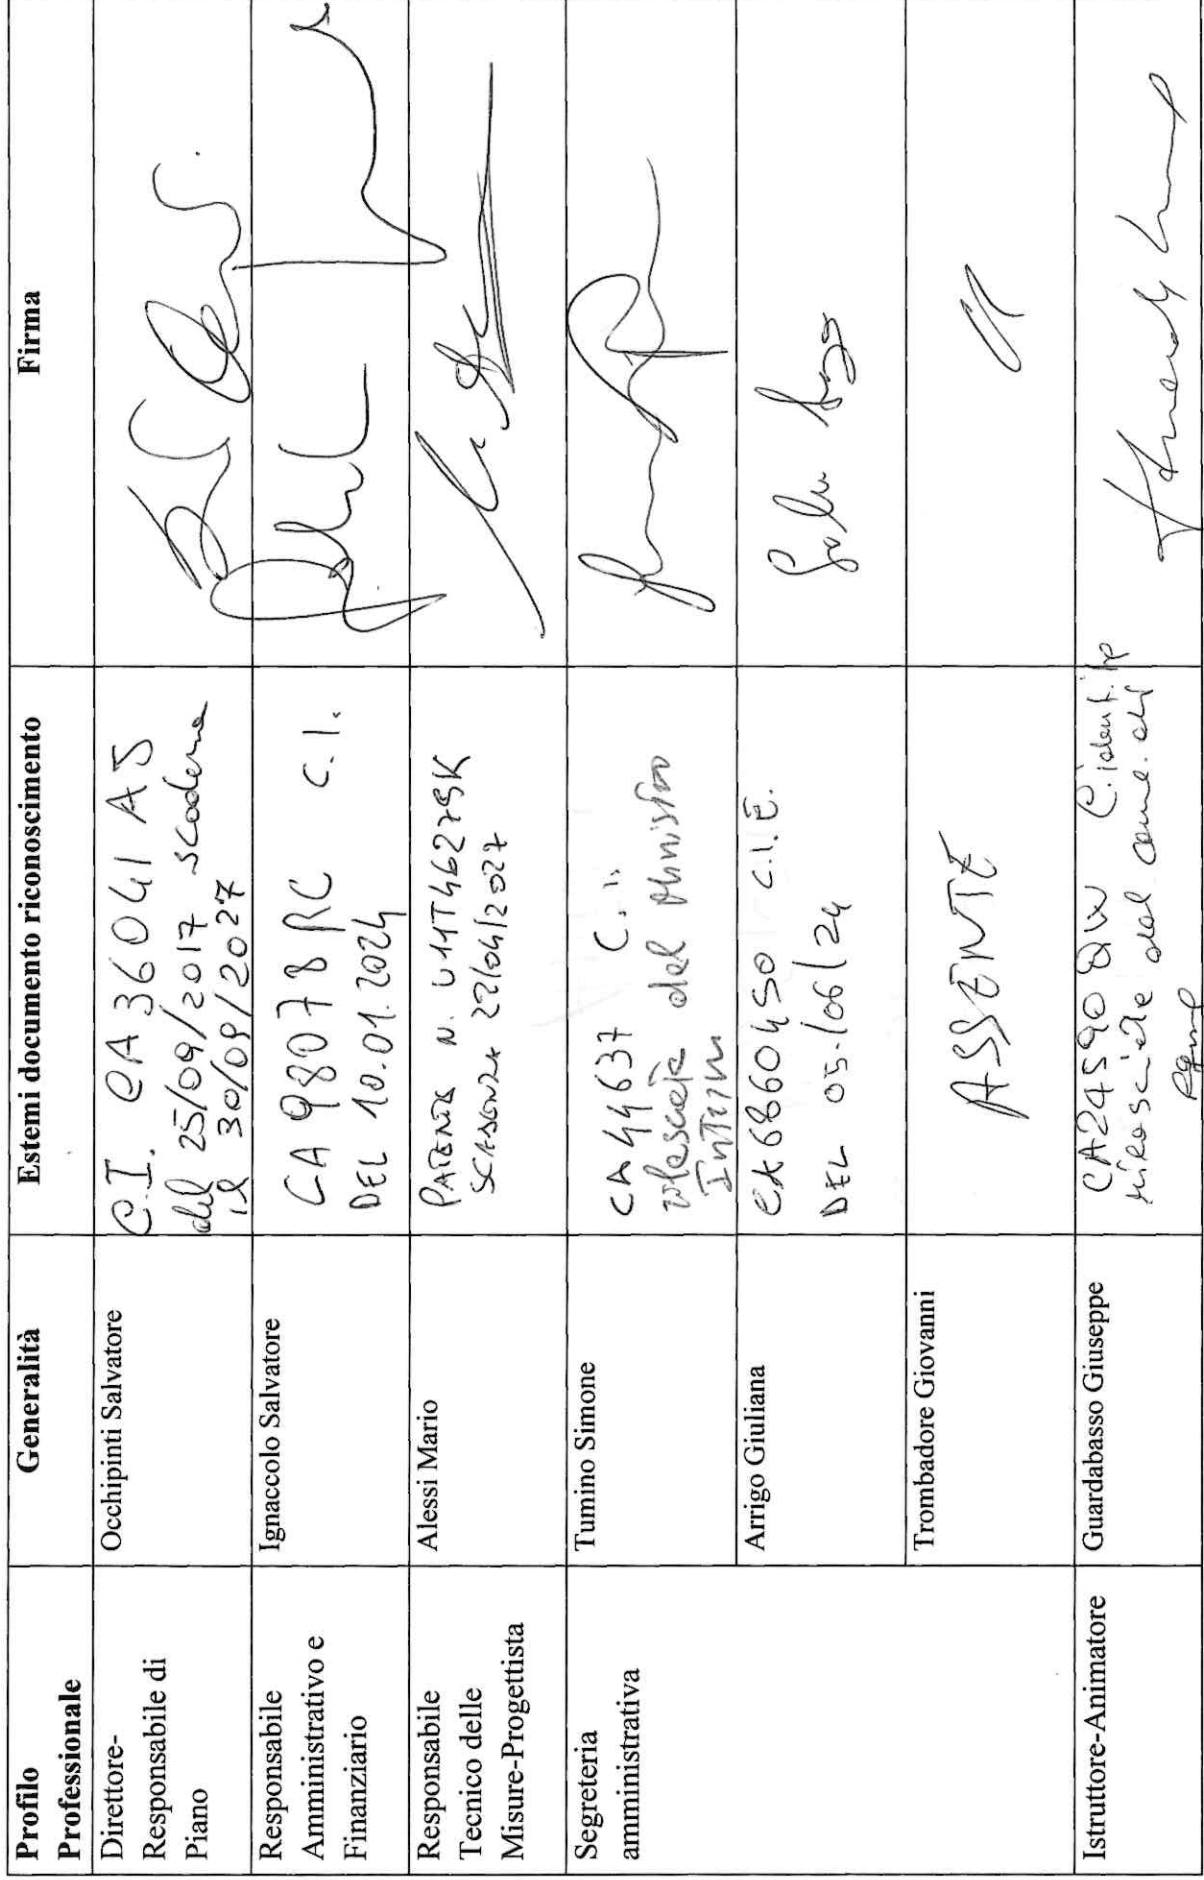 Profilo
Professionale
Generalità
Estemi documento riconoscimento
Firma
Direttore-
Responsabile di
Piano
Occhipinti Salvatore
C.I. CA 36041 AJ
del 25/09/2017 scadenza
il 30/09/2027
Responsabile
Amministrativo e
Finanziario
Ignaccolo Salvatore
CA 98078 RC C.I.
DEL 10.01.2024
Responsabile
Tecnico delle
Misure-Progettista
Alessi Mario
PATENTE N. U11T46279K
SCADENZA 22/04/2027
Segreteria
amministrativa
Tumino Simone
CA 44637 C.I.
del Ministro
Arrigo Giuliana
C.I.E.
DEL 05/06/24
Trombadore Giovanni
ASSENTE
Istruttore-Animatore
Guardabasso Giuseppe
CA24590QW C.identità